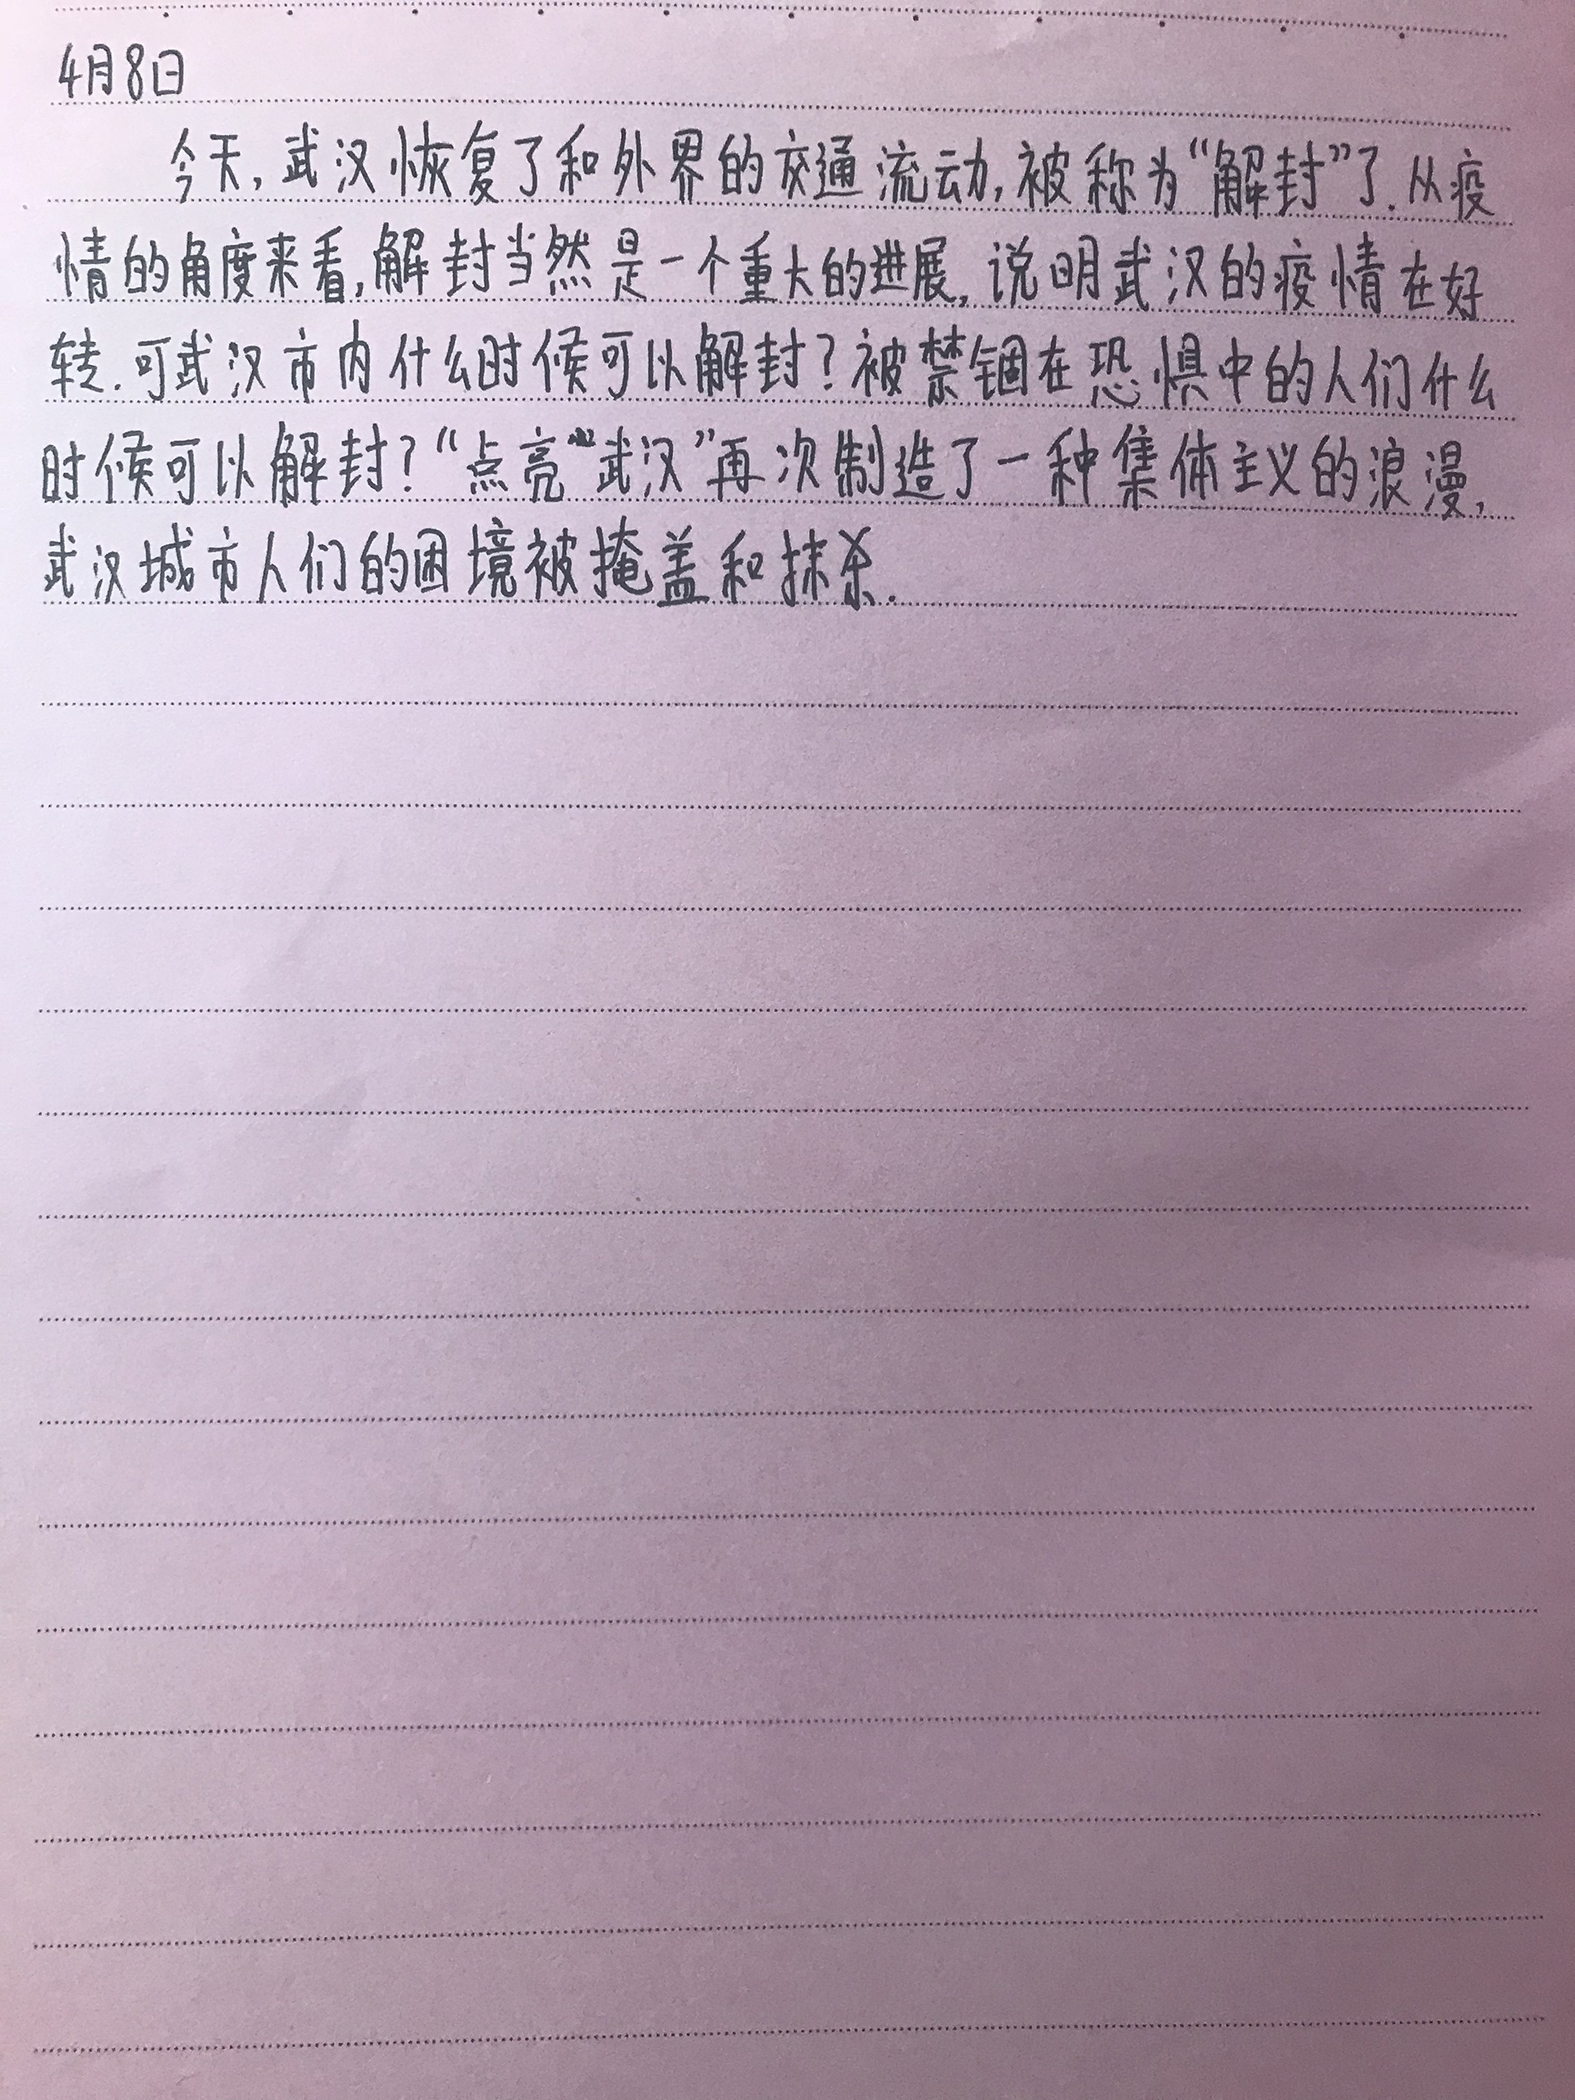 4月8日
今天,武汉恢复了和外界的交通流动,被称为“解封”了.从疫
情的角度来看,解封当然是一个重大的进展,说明武汉的疫情在好
转.可武汉市内什么时候可以解封?被禁锢在恐惧中的人们什么
时候可以解封?“点亮武汉”再次制造了一种集体主义的浪漫,
武汉城市人们的困境被掩盖和抹杀.